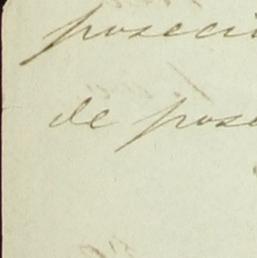 poseci
de pose